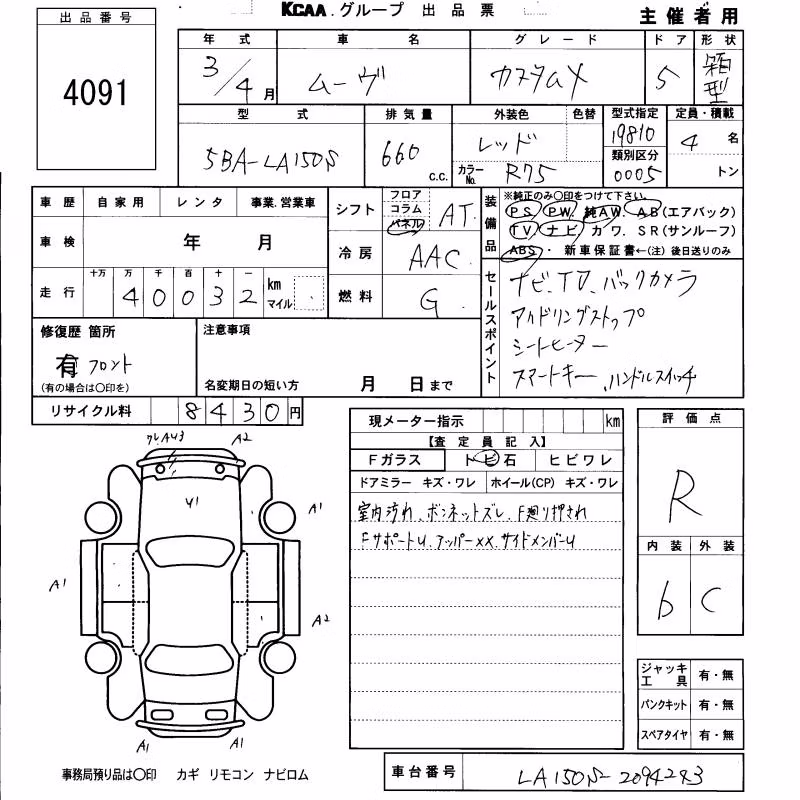 出品番号
4091
KCAA.グループ 出品票
主催者用
年式 車名 グレード ドア 形状
3/4月 ムーヴ カスタムX 5 箱型
型式 排気量 外装色 色替 型式指定 定員・積載
5BA-LA150S 660 c.c. レッド 19810 4名
カラーNo. R75 類別区分 0005 トン
車歴 自家用 レンタ 事業.営業車
シフト フロア コラム パネル AT
車検 年 月
冷房 AAC
走行 十万 万 千 百 十 一
40032 km マイル
燃料 G
装備品
※純正のみ〇印をつけて下さい。
PS PW. 純AW. AB(エアバック)
TV ナビ カワ. SR(サンルーフ)
ABS・ 新車保証書←(注)後日送りのみ
セールスポイント
ナビ、TV、バックカメラ
アイドリングストップ
シートヒーター
スマートキー、ハンドルスイッチ
修復歴 箇所
有 フロント
(有の場合は〇印を)
注意事項
名変期日の短い方 月 日まで
リサイクル料 8430円
現メーター指示 km
【査定員記入】
Fガラス トビ石 ヒビワレ
ドアミラー キズ・ワレ ホイール(CP) キズ・ワレ
室内汚れ、ボンネットズレ、F廻り押され
FサポートU、アッパーXX、サイドメンバーU
評価点
R
内装 外装
b C
A2
U1
A1
A1
A2
A1
A1
ジャッキ工具 有・無
パンクキット 有・無
スペアタイヤ 有・無
事務局預り品は〇印 カギ リモコン ナビロム
車台番号 LA150S-2094283